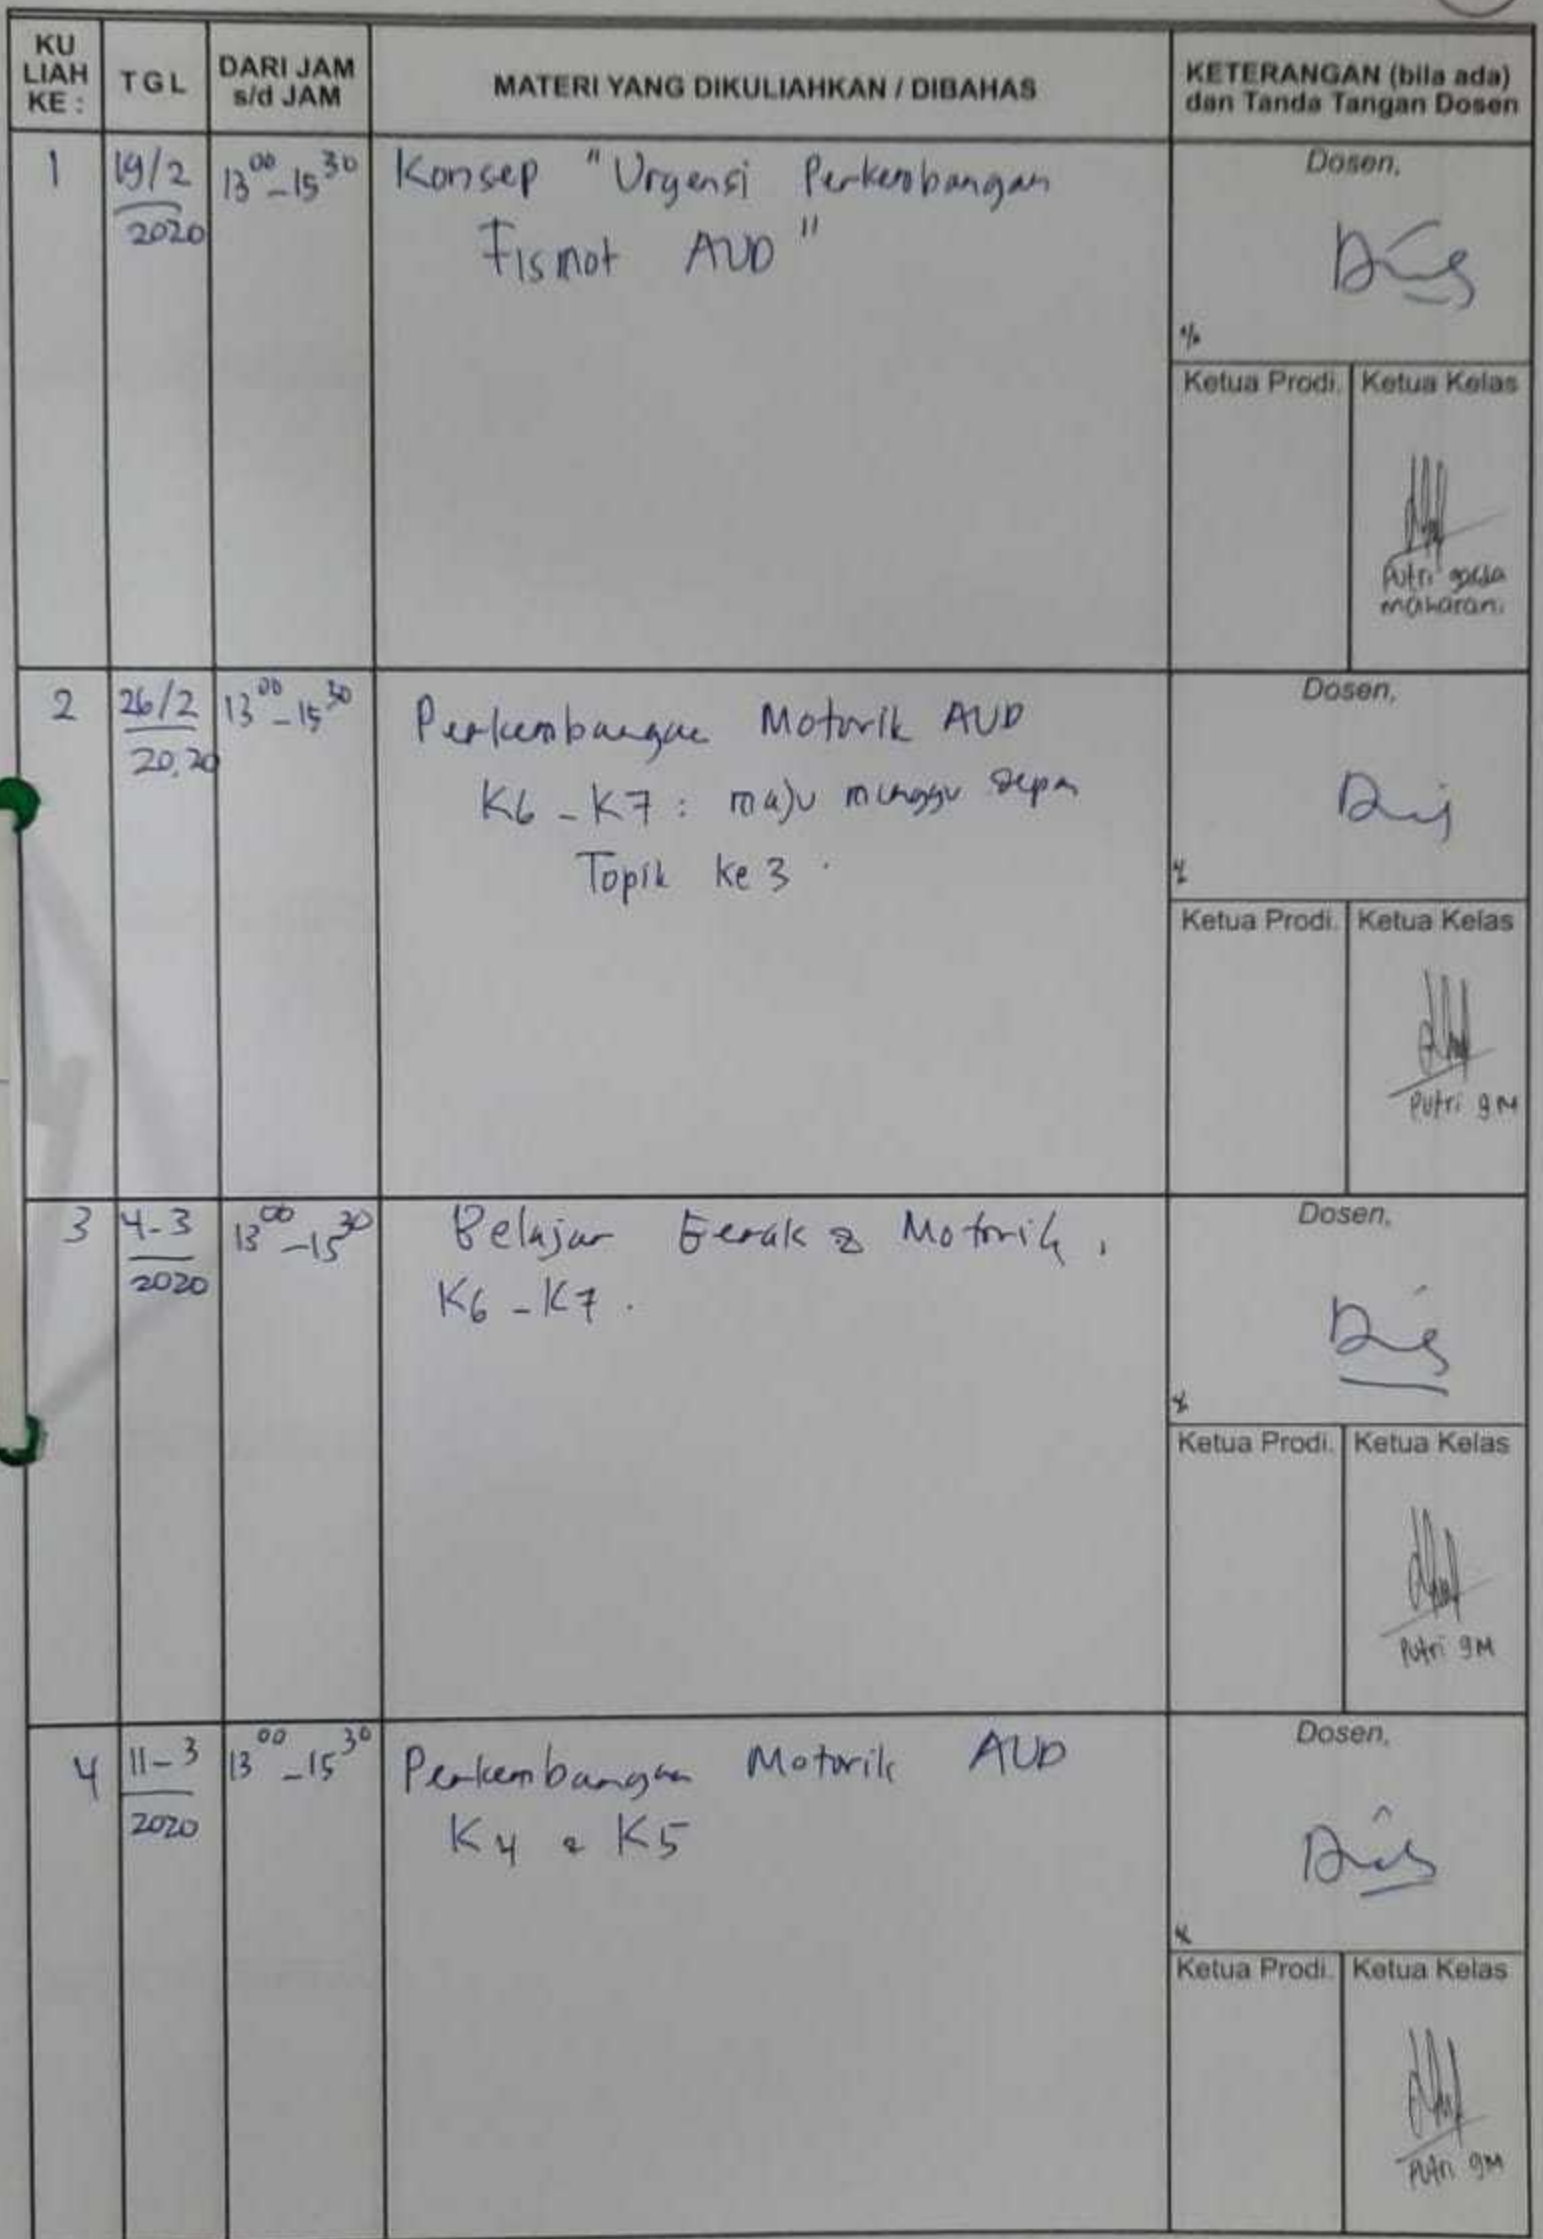 KU LIAH KE : TGL DARI JAM s/d JAM MATERI YANG DIKULIAHKAN / DIBAHAS KETERANGAN (bila ada) dan Tanda Tangan Dosen
1 19/2 2020 13 00 - 15 30 Konsep "Urgensi Perkembangan
Fismot AUD"
Dosen,
Ketua Prodi. Ketua Kelas
Putri
maharani
2 26/2 20.20 13 00 - 15 30 Perkembangan Motorik AUD
K6 - K7 : maju minggu depan
Topik ke 3 .
Dosen,
Ketua Prodi. Ketua Kelas
Putri GM
3 4-3 2020 13 00 - 15 30 Belajar Gerak & Motorik .
K6 - K7 .
Dosen,
Ketua Prodi. Ketua Kelas
Putri GM
4 11-3 2020 13 00 - 15 30 Perkembangan Motorik AUD
K4 & K5
Dosen,
Ketua Prodi. Ketua Kelas
Putri GM